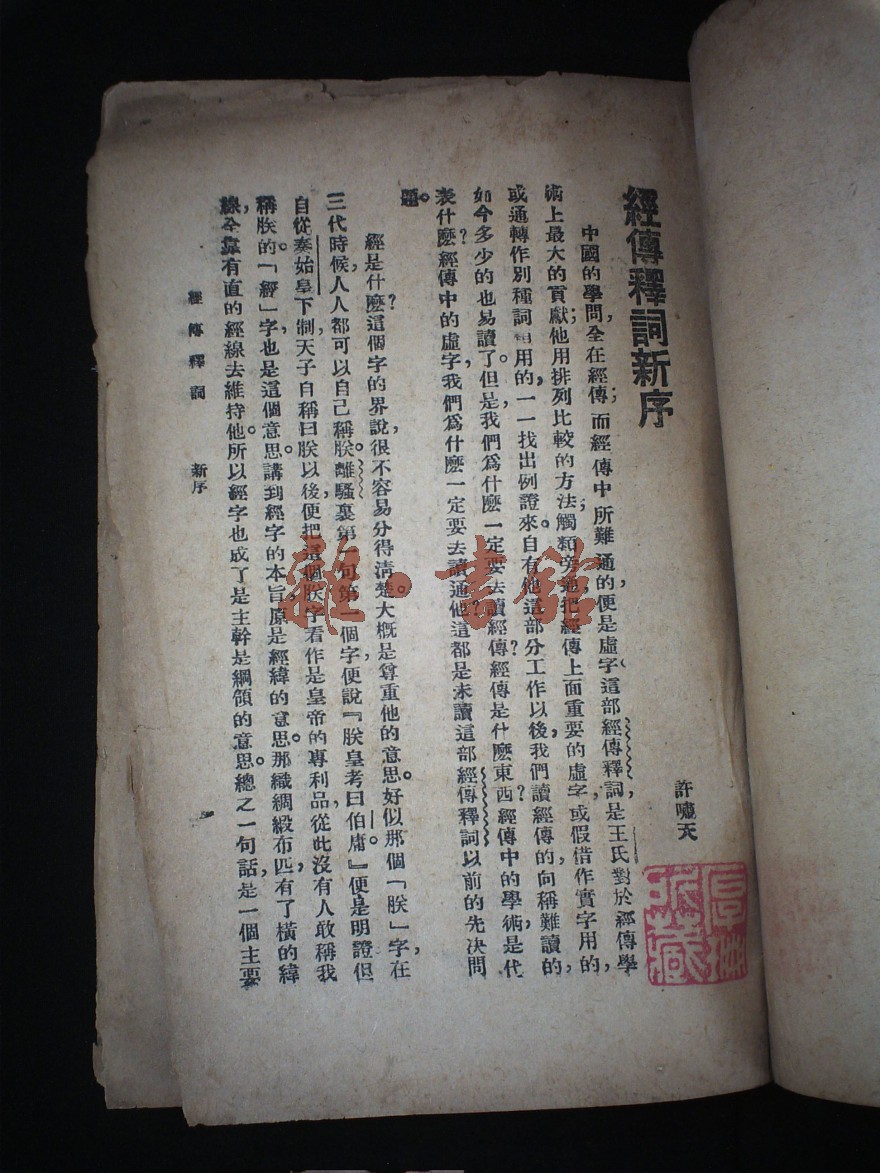 經傳釋詞新序
許嘯天
中國的學問,全在經傳;而經傳中所難通的,便是虛字;這部經傳釋詞,是王氏對於經傳學
術上最大的貢獻;他用排列比較的方法;觸類旁通,把經傳上面重要的虛字,或假借作實字用的,
或通轉作別種詞類用的,一一找出例證來。自有他這部分工作以後,我們讀經傳的,向稱難讀的,
如今多少的也易讀了。但是,我們爲什麽一定要去讀經傳?經傳是什麽東西?經傳中的學術,是代
表什麽?經傳中的虛字,我們爲什麽一定要去讀通他?這都是未讀這部經傳釋詞以前的先決問
題。
經是什麽?這個字的界說,很不容易分得清楚。大概是尊重他的意思。好似那個「朕」字,在
三代時候,人人都可以自己稱朕。離騷裏第一句第一個字,便說『朕皇考曰伯庸。』便是明證。但
自從秦始皇下制,天子自稱曰朕以後,便把這個朕字看作是皇帝的專利品,從此沒有人敢稱我
稱朕的。「經」字也是這個意思。講到經字的本旨,原是經緯的意思。那織綢緞布匹,有了橫的緯
線,全靠有直的經線去維持他。所以經字也成了是主幹是綱領的意思。總之一句話,是一個主要
經傳釋詞 新序
雜·書館
所藏